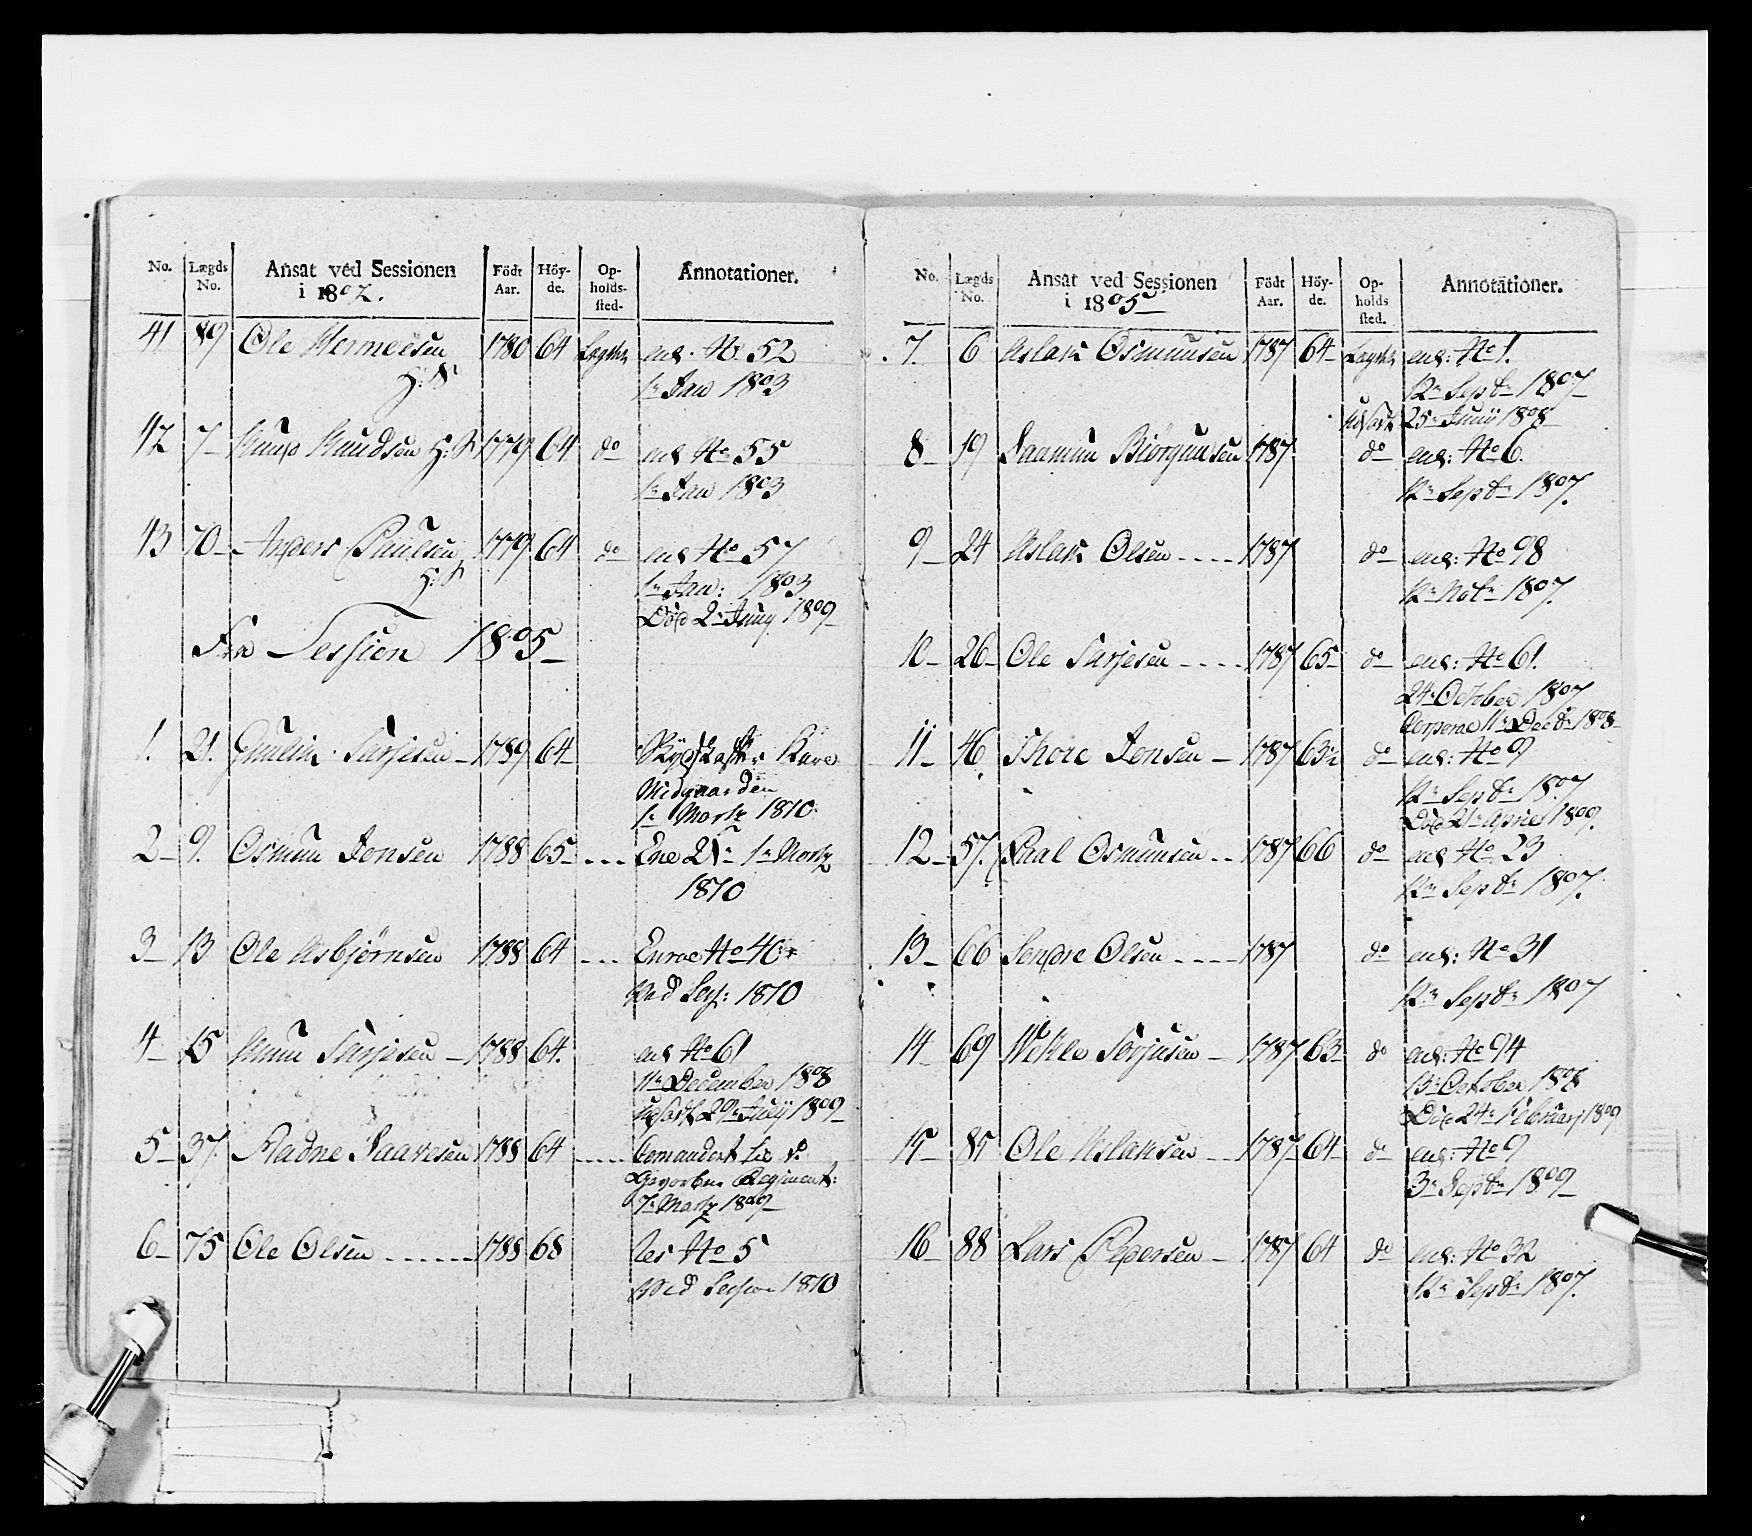 No. Lægds No. Ansat ved Sessionen i 1802. Födt Aar. Höy-de. Op-holds-sted- Annotationer.
41 89 Ole Hermeesen 1780 64 Lægdet anl. No. 52
H: S 1n Jan 1803
42 7- Knud Knudsen H: S 1779 64 do anl No 55
1n Jan 1803
43 70- Anders Paulsen 1779 64 do anl No 57
H: S 1n Jan: 1803
Död 2n Juny 1809
Fra Session 1805-
1. 21. Tarjesen - 1789 64- Skydskaffer
Midgaarden
1n Martz 1810
2- 9. Osmun Jonsen 1788 65- ... 1n Martz
1810
3- 13 Ole Asbjørnsen 1788 64 ... No 40
ved Sess: 1810
4- 15 Tarjesen - 1788 64. anl No 61
11n December 1808
29n July 1809
5- 37. Aadne Saavesen 1788 64 .....
Regiment:
7n Martz 1809
6- 75 Ole Olsen ....... 1788 68 No 5
ved Session 1810
No. Lægds No. Ansat ved Sessionen i 1805- Födt Aar. Höy-de. Op-holds sted. Annotationer.
7. 6 Aslak Osmunsen 1787 64- Lægdet anl: No 1.
12n Septbr 1807
25n Juny 1808
8- 19 Saamun Biörgunsen 1787 do anl: No 6.
12n Septbr 1807.
9- 24 Aslak Olsen .... 1787 do anl: No 98
1807.
10- 26- Ole Tarjesen .... 1787 65- do anl: No 61.
24n October 1807
Decbr 1808-
11- 46 Thore Jonsen - 1787 63½ do anl: No 9
12n Septbr 1807
Död 21n April 1809.
12- 57. Paal Osmunsen .. 1787 66 do anl No 23
12n Septbr 1807.
13- 66 Sondre Olsen .... 1787 do anl: No 31
12n Septbr 1807
14 69 Wetle Torjusen - 1787 63- do anl: No 94
13n October 1808
Död 24n Februarj 1809
15- 85 Ole Aslaksen .. 1787 64- do anl: No 9
3n Septbr 1809-
16- 88 Lars Pedersen - 1787 64 do anl: No 32
12n Septbr 1807.